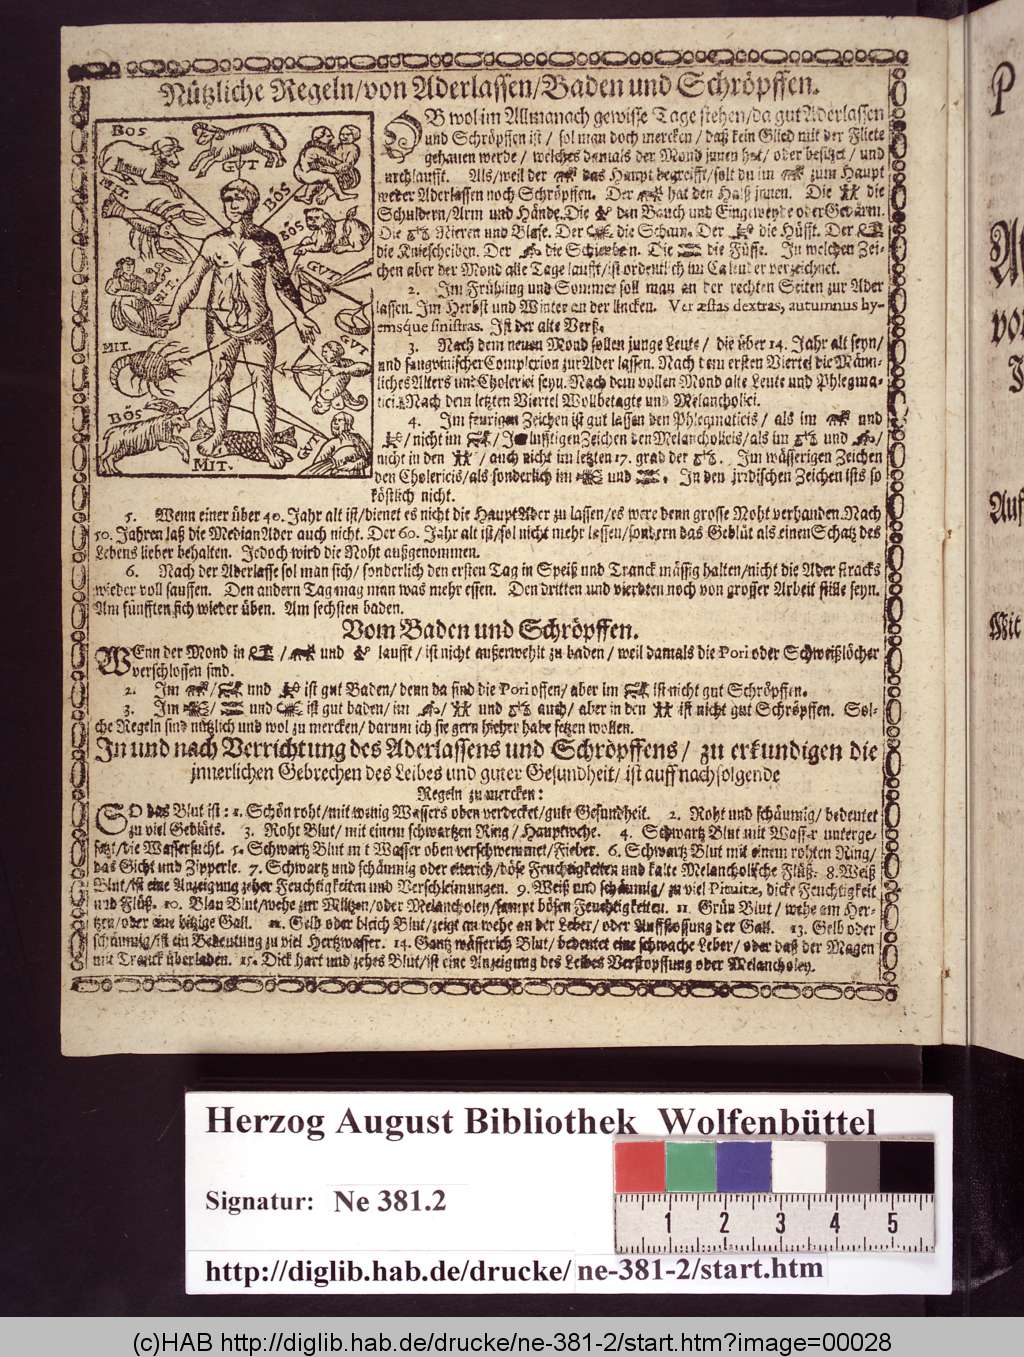 Nützliche Regeln/von Aderlassen/Baden und Schröpffen.
BÖS
GUT
BÖS
MIT.
BÖS
MIT.
GUT
MIT.
GUT
BÖS
MIT.
GUT
OB wol im Allmanach gewisse Tage stehen/da gut Aderlassen
und Schröpffen ist / sol man doch mercken / daß kein Glied mit der Fliete
gehauen werde / welches damals der Mond jnnen hat/ oder besitzet / und
durchlaufft. Als/weil der das Haupt begreifft/solt du im zum Haupt
weder Aderlassen noch Schröpffen. Der hat den Halß jnnen. Die die
Schuldern/Arm und Hände. Die den Bauch und Eingeweyde oder Gedärm.
Die Nieren und Blase. Der die Scham. Der die Hüfft. Der
die Kniescheiben. Der die Schienben. Die die Füsse. In welchen Zei-
chen aber der Mond alle Tage laufft/ist ordentlich im Calender verzeichnet.
2. Im Frühling und Sommer soll man an der rechten Seiten zur Ader
lassen. Im Herbst und Winter an der lincken. Ver æstas dextras, autumnus hy-
emsque sinistras. Ist der alte Verß.
3. Nach dem neuen Mond sollen junge Leute / die über 14. Jahr alt seyn/
und sangvinischer Complexion zur Ader lassen. Nach dem ersten Viertel die Männ-
liches Alters und Cholerici seyn. Nach dem vollen Mond alte Leute und Phlegma-
tici. Nach dem letzten Viertel Wollbetagte und Melancholici.
4. Im feurigen Zeichen ist gut lassen den Phlegmaticis / als im und
/ nicht im / In lufftigen Zeichen den Melancholicis/als im und /
nicht in den / auch nicht im letzten 17. grad der . Im wässerigen Zeichen
den Cholericis/als sonderlich im und . In den jrrdischen Zeichen ists so
köstlich nicht.
5. Wenn einer über 40. Jahr alt ist/dienet es nicht die HauptAder zu lassen/es were denn grosse Noht verhanden. Nach
50. Jahren laß die MedianAder auch nicht. Der 60. Jahr alt ist/sol nicht mehr lassen/sondern das Geblüt als einen Schatz des
Lebens lieber behalten. Jedoch wird die Noht außgenommen.
6. Nach der Aderlasse sol man sich/ sonderlich den ersten Tag in Speiß und Tranck mässig halten/nicht die Ader stracks
wieder voll sauffen. Den andern Tag mag man was mehr essen. Den dritten und vierdten noch von grosser Arbeit stille seyn.
Am fünfften sich wieder üben. Am sechsten baden.
Vom Baden und Schröpffen.
WEnn der Mond in / und laufft / ist nicht außerwehlt zu baden / weil damals die Pori oder Schweißlöcher
verschlossen sind.
2. Im / und ist gut Baden/ denn da sind die Pori offen/ aber im ist nicht gut Schröpffen.
3. Im / und ist gut baden/ im / und auch/ aber in den ist nicht gut Schröpffen. Sol-
che Regeln sind nützlich und wol zu mercken/ darum ich sie gern hieher habe setzen wollen.
In und nach Verrichtung des Aderlassens und Schröpffens / zu erkundigen die
jnnerlichen Gebrechen des Leibes und guter Gesundheit/ ist auff nachfolgende
Regeln zu mercken:
SO das Blut ist: 1. Schön roht/mit wenig Wassers oben verdecket/gute Gesundheit. 2. Roht und schäumig/ bedeutet
zu viel Geblüts. 3. Roht Blut/ mit einem schwartzen Ring / Hauptwehe. 4. Schwartz Blut mit Wasser unterge-
setzt/die Wassersucht. 5. Schwartz Blut mit Wasser oben verschwemmet/Fieber. 6. Schwartz Blut mit einem rohten Ring/
das Gicht und Zipperle. 7. Schwartz und schäumig oder eiterich/böse Feuchtigkeiten und kalte Melancholische Flüß. 8. Weiß
Blut/ist eine Anzeigung zeher Feuchtigkeiten und Verschleimungen. 9. Weiß und schäumig/ zu viel Pituitæ, dicke Feuchtigkeit
und Flüß. 10. Blau Blut/wehe zur Miltzen/oder Melancholey/sampt bösen Feuchtigkeiten. 11. Grün Blut / wehe am Her-
tzen/oder eine hitzige Gall. 12. Gelb oder bleich Blut/zeigt an wehe an der Leber/ oder Auffstossung der Gall. 13. Gelb oder
schäumig/ist ein Bedeutung zu viel Hertzwasser. 14. Gantz wässerich Blut/ bedeutet eine schwache Leber/ oder daß der Magen
mit Tranck überladen. 15. Dick hart und zehes Blut/ist eine Anzeigung des Leibes Verstopffung oder Melancholey.
von
Auf
Mit
Herzog August Bibliothek Wolfenbüttel
Signatur: Ne 381.2
1 2 3 4 5
http://diglib.hab.de/drucke/ne-381-2/start.htm
(c)HAB http://diglib.hab.de/drucke/ne-381-2/start.htm?image=00028